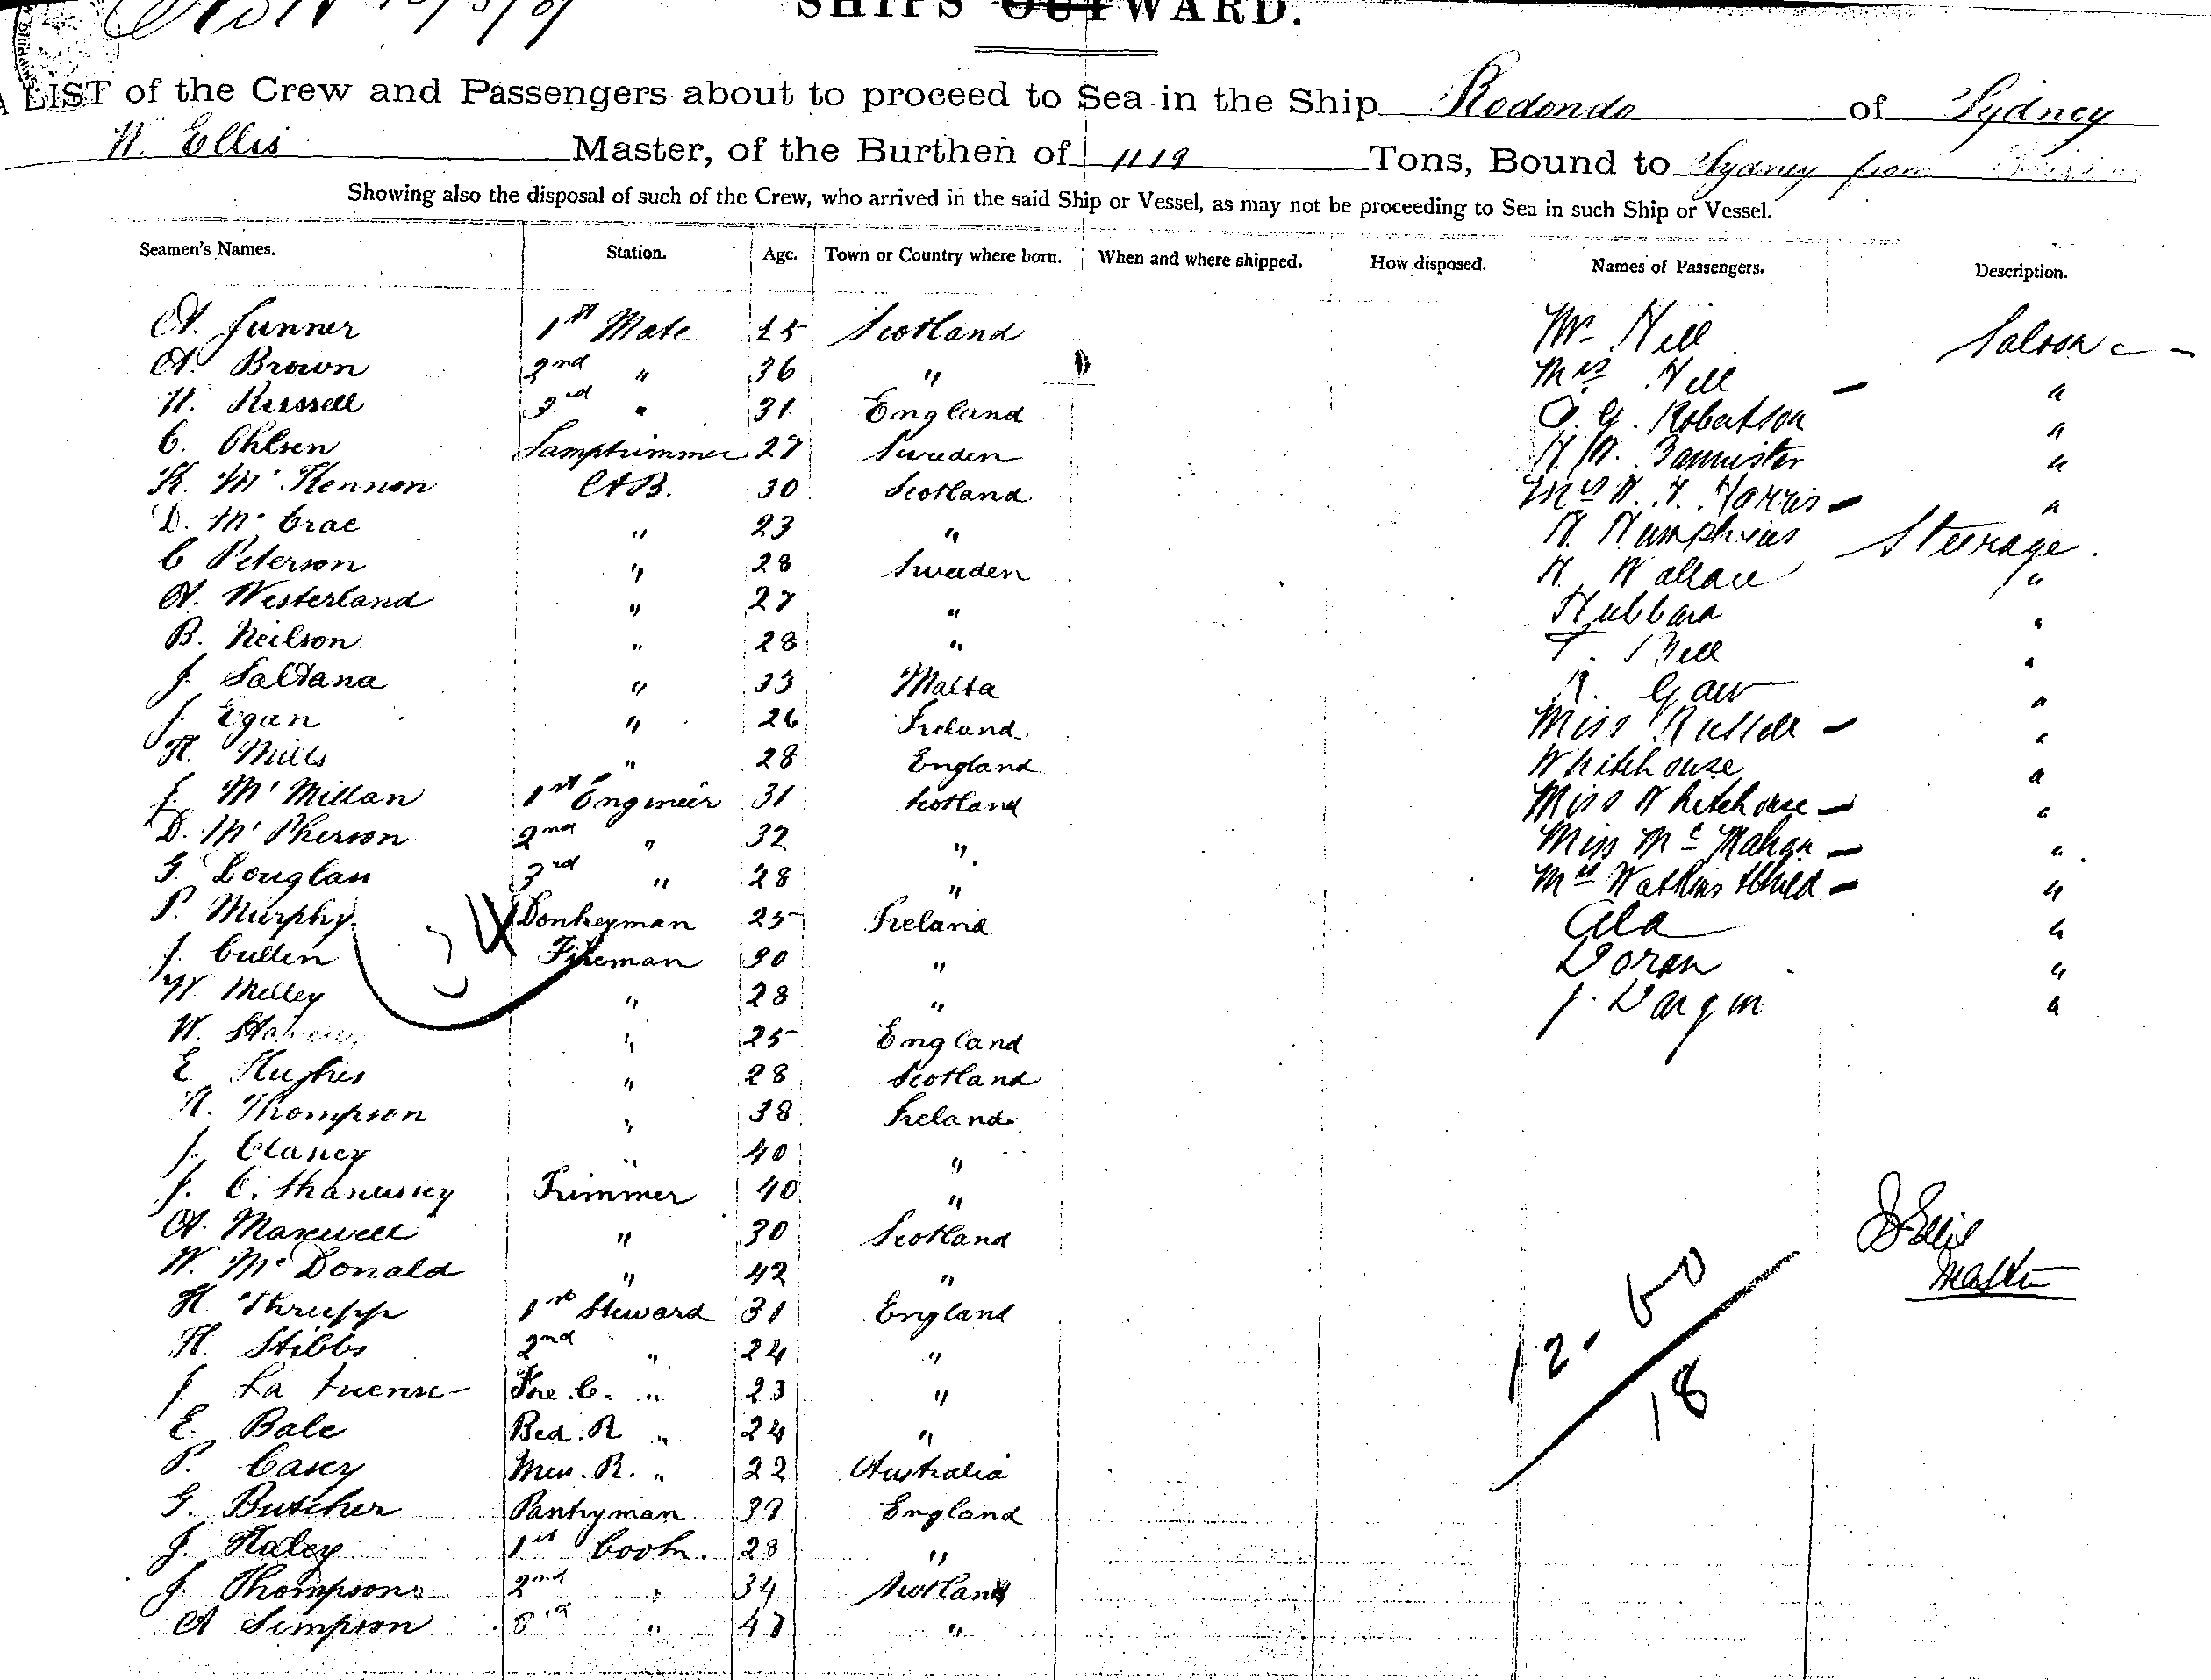 SHIPS OUTWARD.
A LIST of the Crew and Passengers about to proceed to Sea in the Ship Rodondo of Sydney
W. Ellis Master, of the Burthen of 1119 Tons, Bound to Sydney from
Showing also the disposal of such of the Crew, who arrived in the said Ship or Vessel, as may not be proceeding to Sea in such Ship or Vessel.
Seamen's Names. Station. Age. Town or Country where born. When and where shipped. How disposed. Names of Passengers. Description.
A. Junner 1st Mate Scotland Mr Hill Saloon
A. Brown 2nd " 36 " Mrs Hill "
H. Russell 3rd " 31 England Robertson "
C. Ohlsen Lamptrimmer 27 Sweden Bannister "
K. McKennon A.B. 30 Scotland Mrs Harris "
D. McCrae " 23 " Humphries Steerage.
C Peterson " 28 Sweden Wallace "
A. Westerland " 27 " Hubbard "
B. Neilson " 28 " T. Bell "
J. Saldana " 33 Malta Gaw "
J. Egan " 26 Ireland Miss Russell "
H. Mills " 28 England Whitehouse "
J. McMillan 1st Engineer 31 Scotland Miss Whitehouse "
D. McPherson 2nd " 32 " Miss McMahon "
G. Douglas 3rd " 28 " Mrs Watkins & Child "
P. Murphy Donkeyman 25 Ireland "
J. Cullen Fireman 30 " Doran "
W. Melley " 28 " J. Dargin "
W. " 25 England
E Hughes " 28 Scotland
Thompson " 38 Ireland
J. Clancy " 40 "
J. Trimmer 40 "
A. Maxwell " 30 Scotland
W. McDonald " 42 "
H. Thrupp 1st Steward 31 England
H. Stibbs 2nd " 24 "
J. Fre. C. " 23 "
E. Bale Bed. R " 24 "
P. Casey Mess. R. " 22 Australia
G. Butcher Pantryman England
J. Haley 1st Cook. 28 "
J. Thompson 2nd " 34 Scotland
A Simpson 3rd " 47 "
Ellis
Master
12.
18